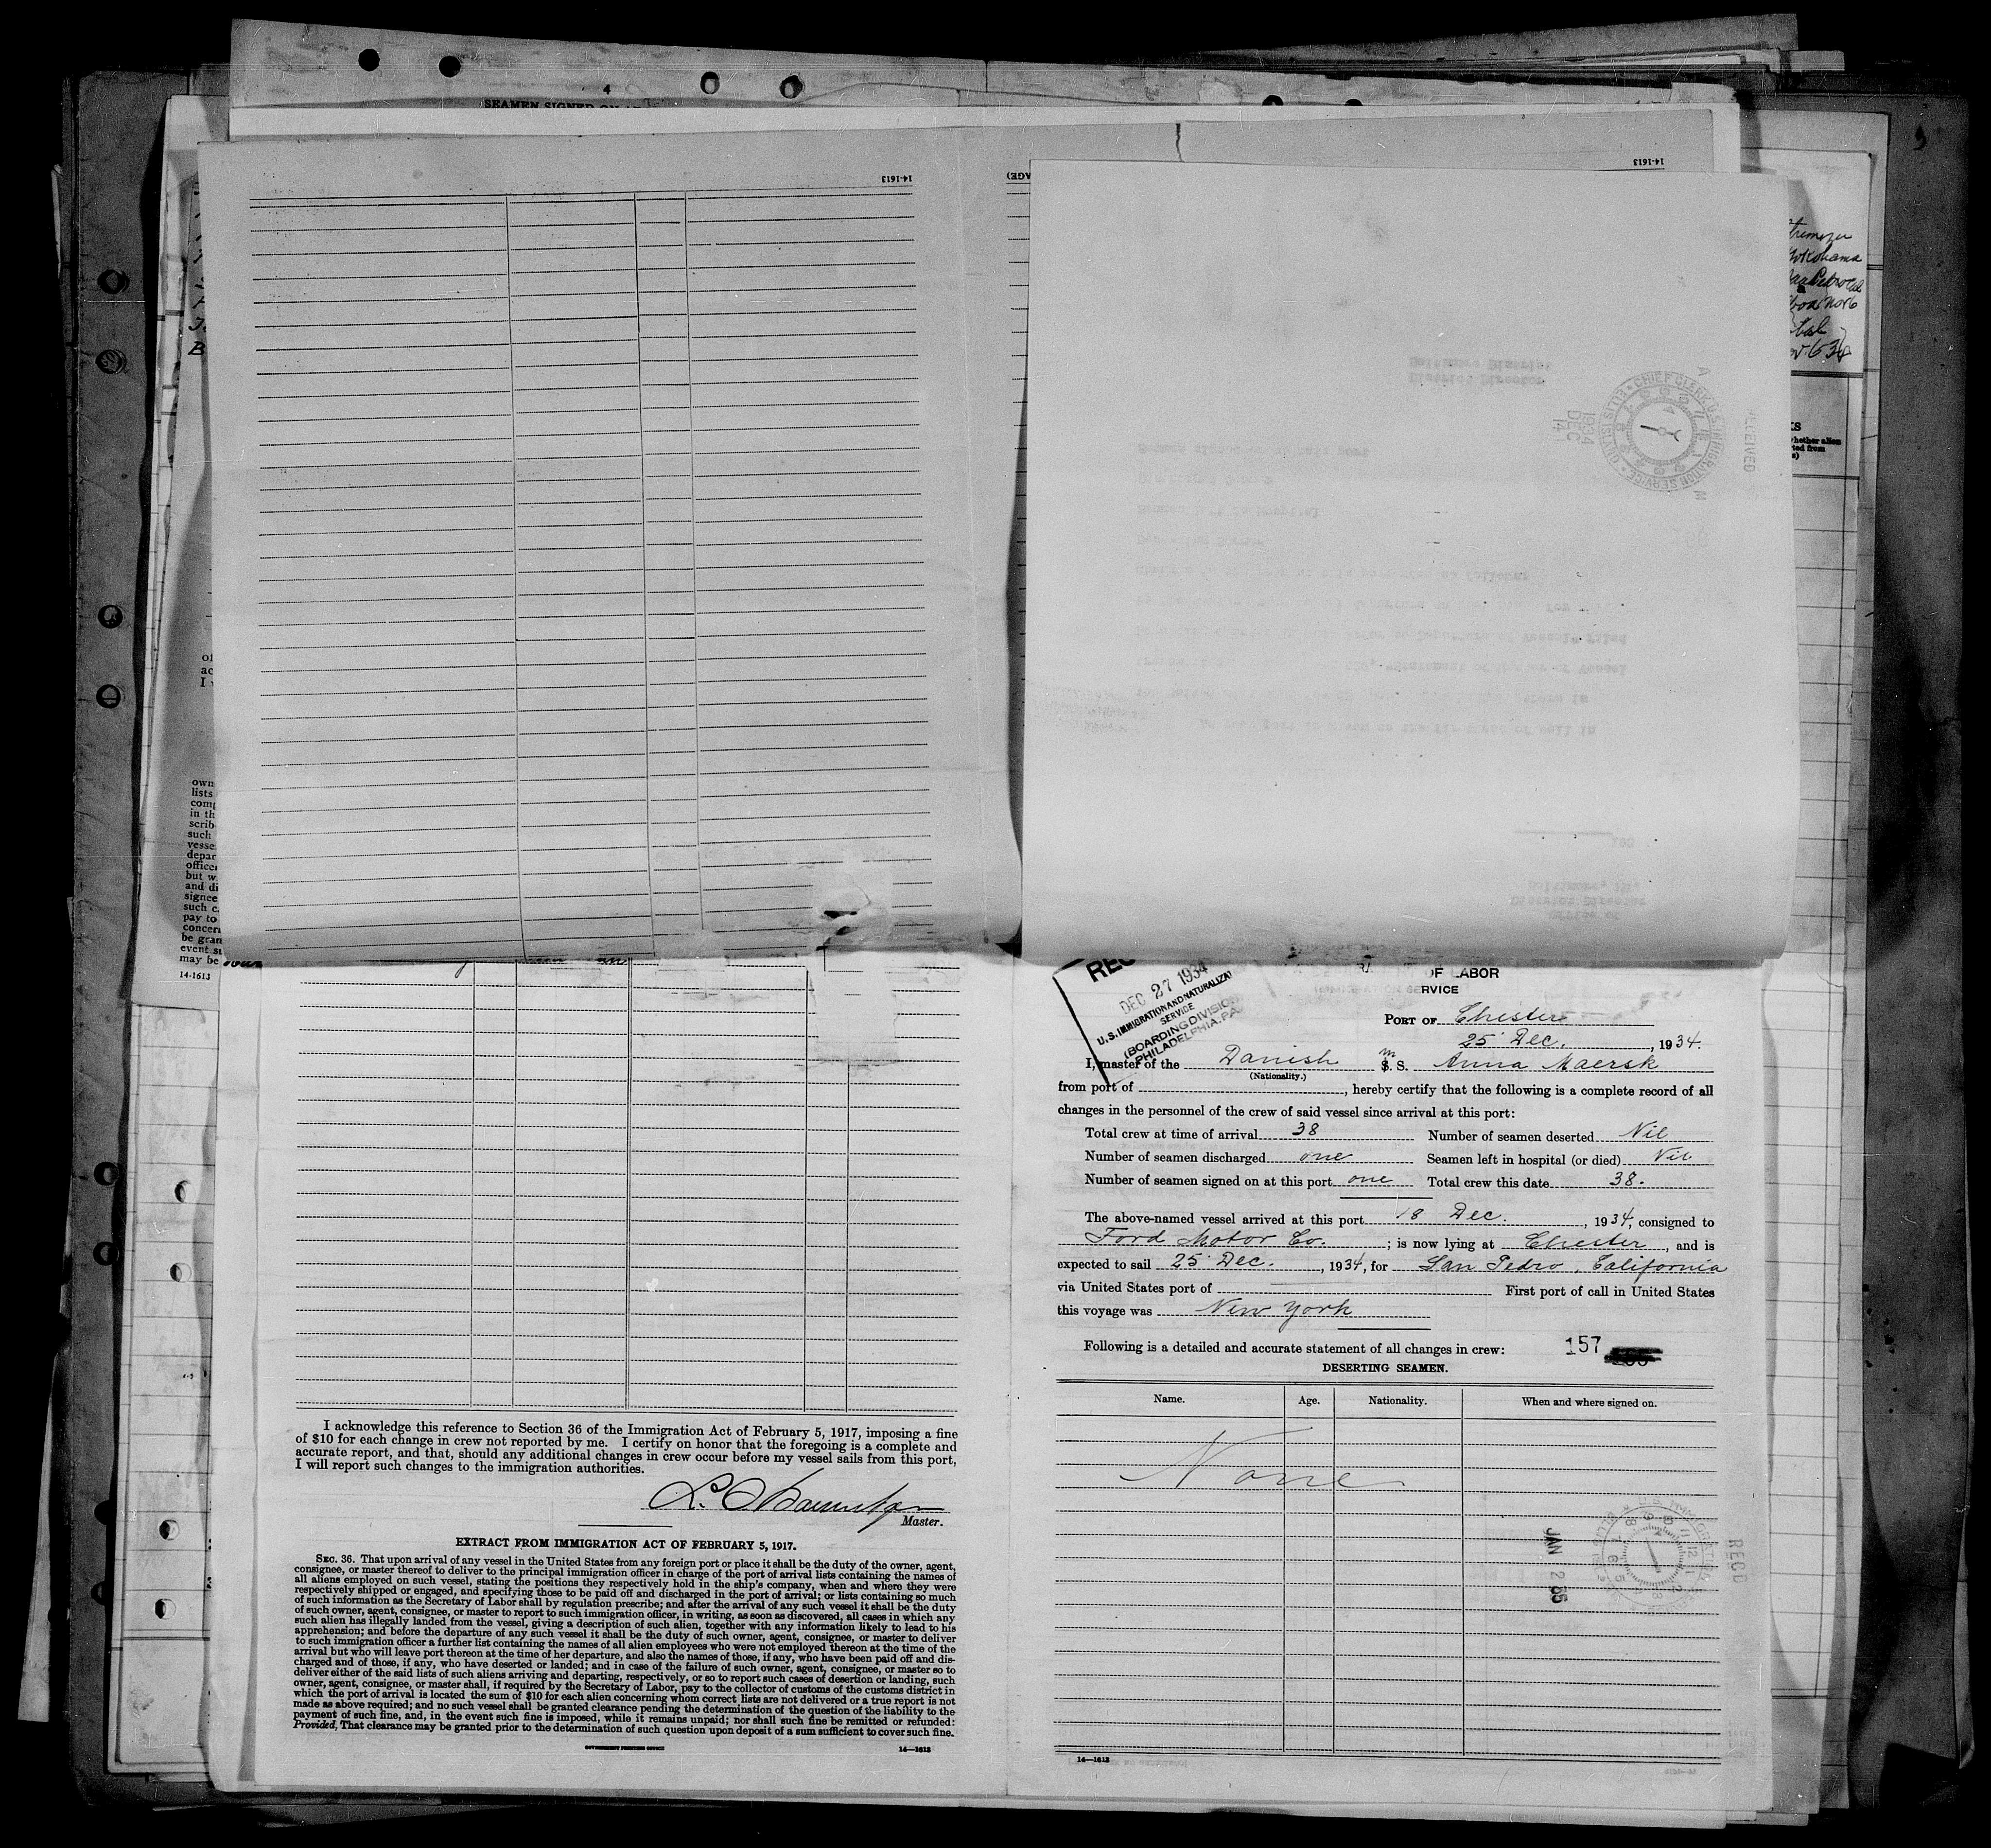 4
SEAMEN SIGNED ON
14-1613
14-1613
Yokohama
RECEIVED
CHIEF CLERK U.S. IMMIGRATION SERVICE
ELLIS ISL'D
DEC 14
1934
District Director
Baltimore District
own
lists
comp
in th
scrib
such
vesse
depar
office
but w
and di
signee
such c
pay to
concer
be gran
event s
may be
14-1613
REC
DEC 27 1934
U.S. IMMIGRATION AND NATURALIZA
SERVICE
(BOARDING DIVISIO
PHILADELPHIA, PA.
OF LABOR
RVICE
PORT OF Chester
25 Dec., 1934.
I, master of the Danish M S. S. Anna Maersk
(Nationality.)
from port of , hereby certify that the following is a complete record of all
changes in the personnel of the crew of said vessel since arrival at this port:
Total crew at time of arrival 38 Number of seamen deserted Nil
Number of seamen discharged one Seamen left in hospital (or died) Nil
Number of seamen signed on at this port one Total crew this date 38.
The above-named vessel arrived at this port 18 Dec., 1934, consigned to
Ford Motor Co.; is now lying at Chester, and is
expected to sail 25 Dec., 1934, for San Pedro, California
via United States port of First port of call in United States
this voyage was New York
Following is a detailed and accurate statement of all changes in crew: 157
DESERTING SEAMEN.
Name. Age. Nationality. When and where signed on.
None
JAN 2
REC'D
14—1613
I acknowledge this reference to Section 36 of the Immigration Act of February 5, 1917, imposing a fine
of $10 for each change in crew not reported by me. I certify on honor that the foregoing is a complete and
accurate report, and that, should any additional changes in crew occur before my vessel sails from this port,
I will report such changes to the immigration authorities.
Master.
EXTRACT FROM IMMIGRATION ACT OF FEBRUARY 5, 1917.
SEC. 36. That upon arrival of any vessel in the United States from any foreign port or place it shall be the duty of the owner, agent,
consignee, or master thereof to deliver to the principal immigration officer in charge of the port of arrival lists containing the names of
all aliens employed on such vessel, stating the positions they respectively hold in the ship's company, when and where they were
respectively shipped or engaged, and specifying those to be paid off and discharged in the port of arrival; or lists containing so much
of such information as the Secretary of Labor shall by regulation prescribe; and after the arrival of any such vessel it shall be the duty
of such owner, agent, consignee, or master to report to such immigration officer, in writing, as soon as discovered, all cases in which any
such alien has illegally landed from the vessel, giving a description of such alien, together with any information likely to lead to his
apprehension; and before the departure of any such vessel it shall be the duty of such owner, agent, consignee, or master to deliver
to such immigration officer a further list containing the names of all alien employees who were not employed thereon at the time of the
arrival but who will leave port thereon at the time of her departure, and also the names of those, if any, who have been paid off and dis-
charged and of those, if any, who have deserted or landed; and in case of the failure of such owner, agent, consignee, or master so to
deliver either of the said lists of such aliens arriving and departing, respectively, or so to report such cases of desertion or landing, such
owner, agent, consignee, or master shall, if required by the Secretary of Labor, pay to the collector of customs of the customs district in
which the port of arrival is located the sum of $10 for each alien concerning whom correct lists are not delivered or a true report is not
made as above required; and no such vessel shall be granted clearance pending the determination of the question of the liability to the
payment of such fine, and, in the event such fine is imposed, while it remains unpaid; nor shall such fine be remitted or refunded:
Provided, That clearance may be granted prior to the determination of such question upon deposit of a sum sufficient to cover such fine.
GOVERNMENT PRINTING OFFICE 14—1613